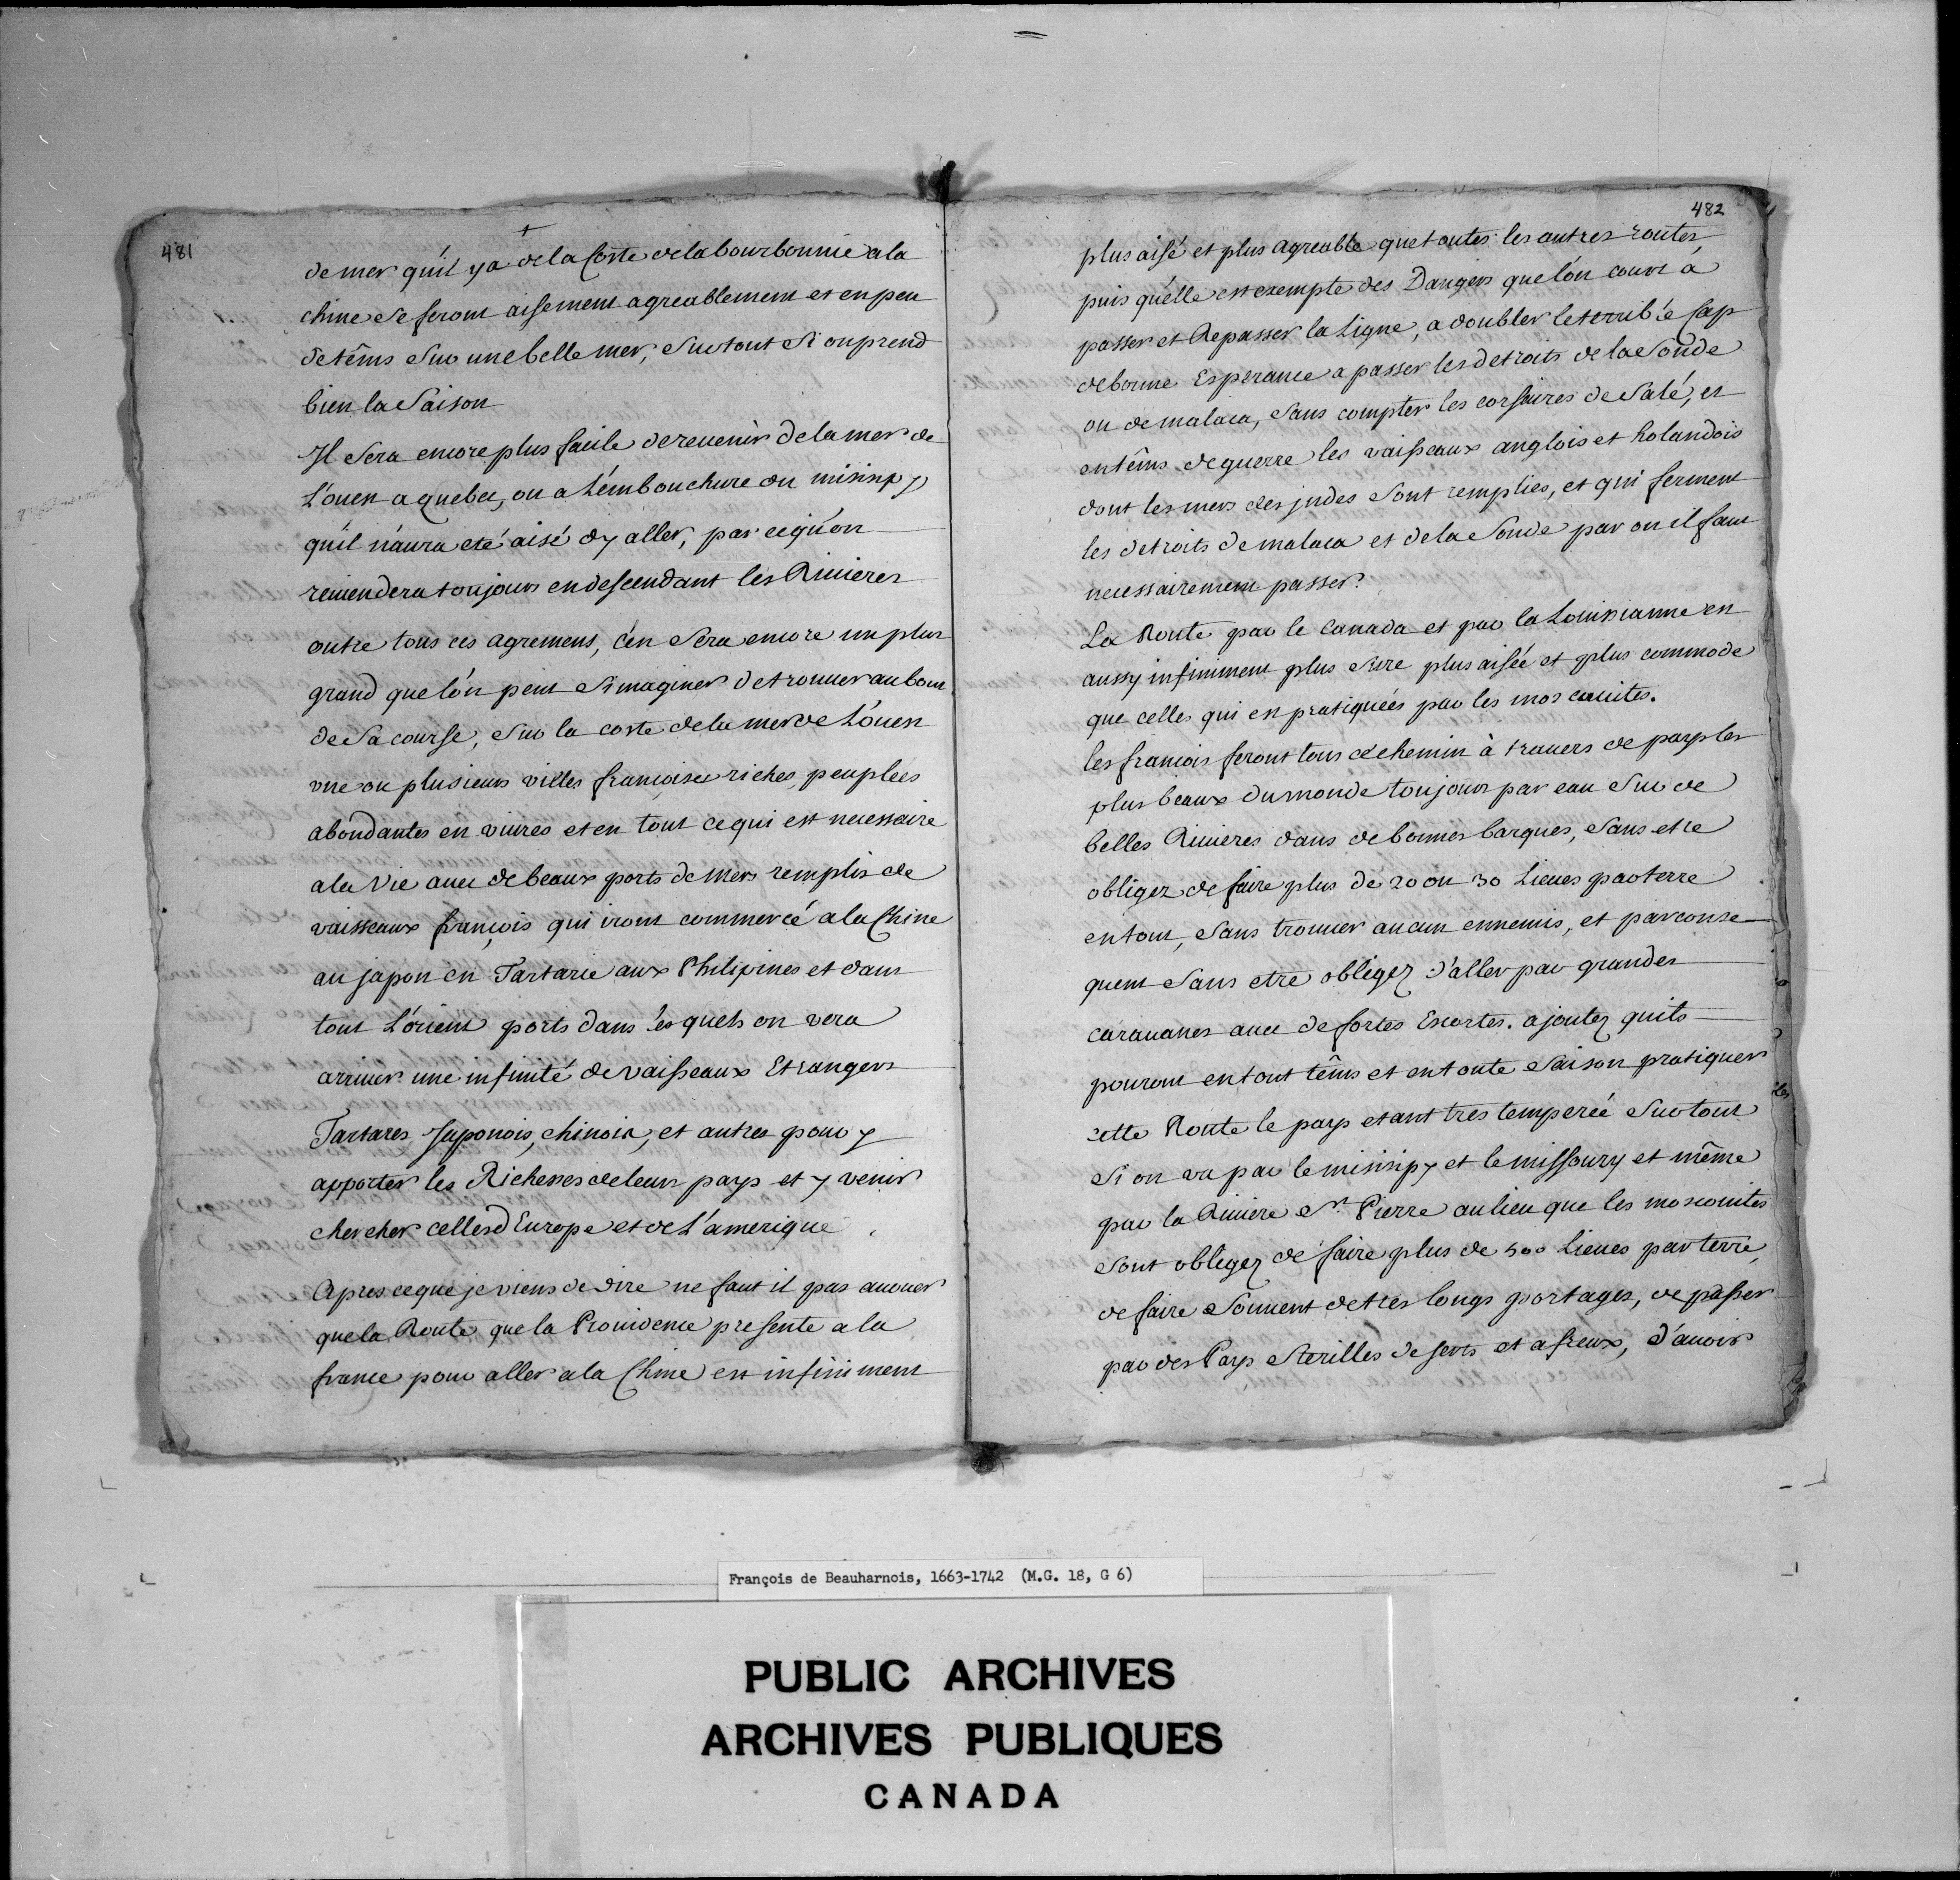 481
de mer qu'il y a de la Coste de la bourbonnie a la
chine se feront aisement agreablement et en peu
de têms sur une belle mer, surtout si on prend
bien la Saison
Il sera encore plus facile de reuenir de la mer de
L'ouest a quebec, ou a L'embouchure du misisipy
qu'il n'aura eté aisé d'y aller, par ce qu'on
reuiendera toujours en descendant les Riuieres
outre tous ces agremens, c'en sera encore un plus
grand que l'on peut s'imaginer de trouuer au bout
de Sa course, sur la coste de la mer de L'ouest
vne ou plusieurs villes françoises riches, peuplées
abondantes en viures et en tout ce qui est necessaire
a la Vie auec de beaux ports de Mers remplis de
vaisseaux françois qui iront commercé a la Chine
au japon en Tartarie aux Philipines et dans
tout L'orient ports dans les quels on vera
arriuer une infinité de vaisseaux Etrangers
Tartares, Japonois, chinois, et autres pour y
apporter les Richesses de leurs pays et y venir
chercher celles d'Europe et de L'amerique
Apres ce que je viens de dire ne faut il pas auouer
que la Route que la Prouidence presente a la
france pour aller a la Chine est infiniment
482
plus aisé et plus agreable que toutes les autres routes,
puis qu'elle est exempte des Dangers que l'on court à
passer et Repasser la Ligne, a doubler le terrible Cap
de bonne Esperance a passer les detroits de la Sonde
ou de malaca, sans compter les corsaires de Salé, et
en têms de guerre les vaisseaux anglois et holandois
dont les mers des jndes sont remplies, et qui ferment
les detroits de malaca et de la Sonde par ou il faut
necessairement passer.
La Route par le Canada et par la Louisianne est
aussy infiniment plus sure plus aisée et plus commode
que celles qui est pratiquées par les moscouites.
les francois feront tous ce chemin à trauers de pays les
plus beaux du monde toujours par eau sur de
belles Riuieres dans de bonnes barques, sans etre
obligez de faire plus de 20 ou 30 Lieues par terre
en tout, sans trouuer aucun ennemis, et par conse
quent sans etre obligez d'aller par grandes
carauanes auec de fortes Escortes. ajoutez quils
pouront en tout têms et en toute saison pratiquer
cette Route le pays etant tres temperée surtout
Si on va par le misisipy et le missoury et même
par la Riuiere St. Pierre au lieu que les moscouites
sont obligez de faire plus de 500 Lieues par terre,
de faire souuent de tres longs portages, de passer
par des Pays Sterilles deserts et afreux, d'auoir
François de Beauharnois, 1663-1742 (M.G. 18, G 6)
PUBLIC ARCHIVES
ARCHIVES PUBLIQUES
CANADA